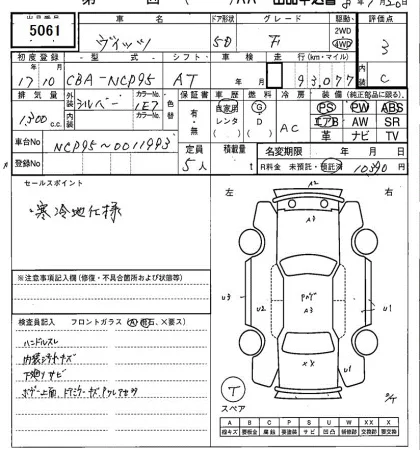 出品番号 車名 ドア形状 グレード 駆動 評価点
5061 ヴィッツ 5D F 2WD 4WD 3
初度登録 型式 シフト 車検 走行(km・マイル) 内装
17年10月 CBA-NCP95 AT 年 月 93,077 C
排気量 外装 色 カラーNo. 色替 保証書 車歴 燃料 冷房 装備(純正部品に限る)
1300c.c. シルバー 1E7 有・無 自家用 レンタ G D AC PS PW ABS
エアB AW SR
革 ナビ TV
車台No NCP95-0011993 定員 積載量 名変期限 年 月 日
登録No 5人 t R料金 未預託・預託済 10390 円
セールスポイント 左 右
・寒冷地仕様
A2
A3
※注意事項記入欄(修復・不具合箇所および状態等)
U3 U2 A3 U1
検査員記入 フロントガラス(A・飛石、×要ス)
ハンドルスレ
内装シートキズ
下廻りサビ
XX U1
T
スペア
A B C P S U W X XX
線キズ 要板金 腐蝕 要塗装 サビ 凹凸 補修跡 交換跡 要交換